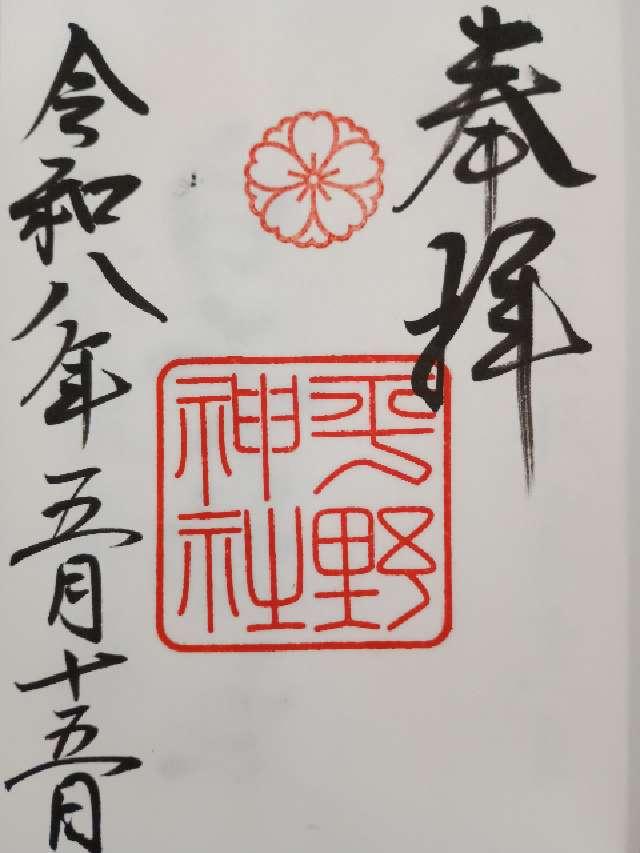 奉拝
平野
神社
令和八年五月十五日